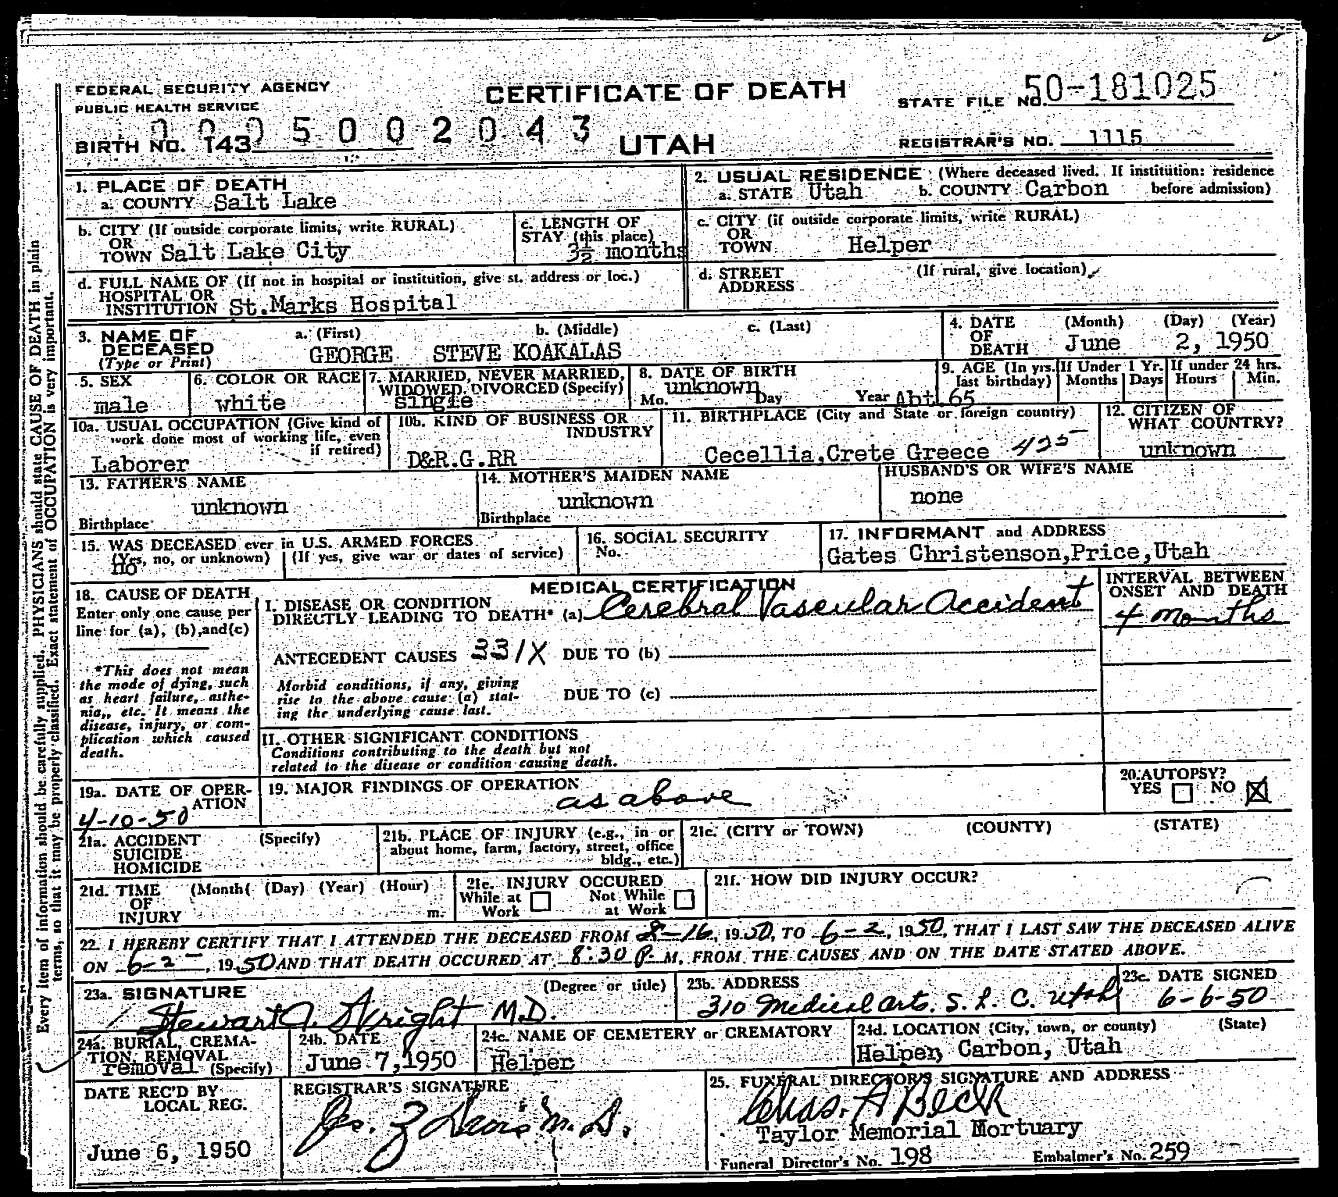 FEDERAL SECURITY AGENCY
PUBLIC HEALTH SERVICE
CERTIFICATE OF DEATH
UTAH
STATE FILE NO. 50-181025
REGISTRAR'S NO. 1115
BIRTH NO. 143
0 0 0 5 0 0 2 0 4 3
1. PLACE OF DEATH
a. COUNTY Salt Lake
b. CITY (If outside corporate limits, write RURAL)
OR
TOWN Salt Lake City
c. LENGTH OF
STAY (this place)
3½ months
d. FULL NAME OF (If not in hospital or institution, give st. address or loc.)
HOSPITAL OR
INSTITUTION St.Marks Hospital
2. USUAL RESIDENCE (Where deceased lived. If institution: residence
a. STATE Utah b. COUNTY Carbon before admission)
c. CITY (if outside corporate limits, write RURAL)
OR
TOWN Helper
d. STREET (If rural, give location)
ADDRESS
3. NAME OF DECEASED (Type or Print)
a. (First) b. (Middle) c. (Last)
GEORGE STEVE KOAKALAS
4. DATE OF DEATH (Month) (Day) (Year)
June 2, 1950
5. SEX
male
6. COLOR OR RACE
white
7. MARRIED, NEVER MARRIED,
WIDOWED, DIVORCED (Specify)
single
8. DATE OF BIRTH
unknown
Mo. Day Year
9. AGE (In yrs. last birthday)
Abt 65
If Under 1 Yr.
Months Days
If under 24 hrs.
Hours Min.
10a. USUAL OCCUPATION (Give kind of
work done most of working life, even
if retired)
Laborer
10b. KIND OF BUSINESS OR
INDUSTRY
D&R.G.RR
11. BIRTHPLACE (City and State or foreign country)
Cecellia,Crete Greece 425
12. CITIZEN OF
WHAT COUNTRY?
unknown
13. FATHER'S NAME
unknown
Birthplace
14. MOTHER'S MAIDEN NAME
unknown
Birthplace
HUSBAND'S OR WIFE'S NAME
none
15. WAS DECEASED ever in U.S. ARMED FORCES
(Yes, no, or unknown) (If yes, give war or dates of service)
no
16. SOCIAL SECURITY
No.
17. INFORMANT and ADDRESS
Gates Christenson,Price,Utah
18. CAUSE OF DEATH
Enter only one cause per
line for (a), (b),and(c)
*This does not mean
the mode of dying, such
as heart failure, asthe-
nia,, etc. It means the
disease, injury, or com-
plication which caused
death.
MEDICAL CERTIFICATION
I. DISEASE OR CONDITION
DIRECTLY LEADING TO DEATH* (a) Cerebral Vascular Accident
ANTECEDENT CAUSES 331X DUE TO (b)
Morbid conditions, if any, giving
rise to the above cause (a) stat-
ing the underlying cause last.
DUE TO (c)
II. OTHER SIGNIFICANT CONDITIONS
Conditions contributing to the death but not
related to the disease or condition causing death.
INTERVAL BETWEEN
ONSET AND DEATH
4 months
19a. DATE OF OPER-
ATION
4-10-50
19. MAJOR FINDINGS OF OPERATION
as above
20. AUTOPSY?
YES NO X
21a. ACCIDENT (Specify)
SUICIDE
HOMICIDE
21b. PLACE OF INJURY (e.g., in or
about home, farm, factory, street, office
bldg., etc.)
21c. (CITY or TOWN) (COUNTY) (STATE)
21d. TIME (Month( (Day) (Year) (Hour)
OF
INJURY m.
21e. INJURY OCCURED
While at Work Not While at Work
21f. HOW DID INJURY OCCUR?
22. I HEREBY CERTIFY THAT I ATTENDED THE DECEASED FROM 2-16, 1950, TO 6-2, 1950, THAT I LAST SAW THE DECEASED ALIVE
ON 6-2, 1950 AND THAT DEATH OCCURED AT 8:30 P.M. FROM THE CAUSES AND ON THE DATE STATED ABOVE.
23a. SIGNATURE (Degree or title)
Stewart A. Wright M.D.
23b. ADDRESS
310 Medical Arts. S.L.C. Utah
23c. DATE SIGNED
6-6-50
24a. BURIAL, CREMA-
TION, REMOVAL
removal (Specify)
24b. DATE
June 7,1950
24c. NAME OF CEMETERY or CREMATORY
Helper
24d. LOCATION (City, town, or county) (State)
Helper, Carbon, Utah
DATE REC'D BY
LOCAL REG.
June 6, 1950
REGISTRAR'S SIGNATURE
M.D.
25. FUNERAL DIRECTOR'S SIGNATURE AND ADDRESS
Chas. A Beck
Taylor Memorial Mortuary
Funeral Director's No. 198 Embalmer's No. 259
Every item of information should be carefully supplied. PHYSICIANS should state CAUSE OF DEATH in plain
terms, so that it may be properly classified. Exact statement of OCCUPATION is very important.